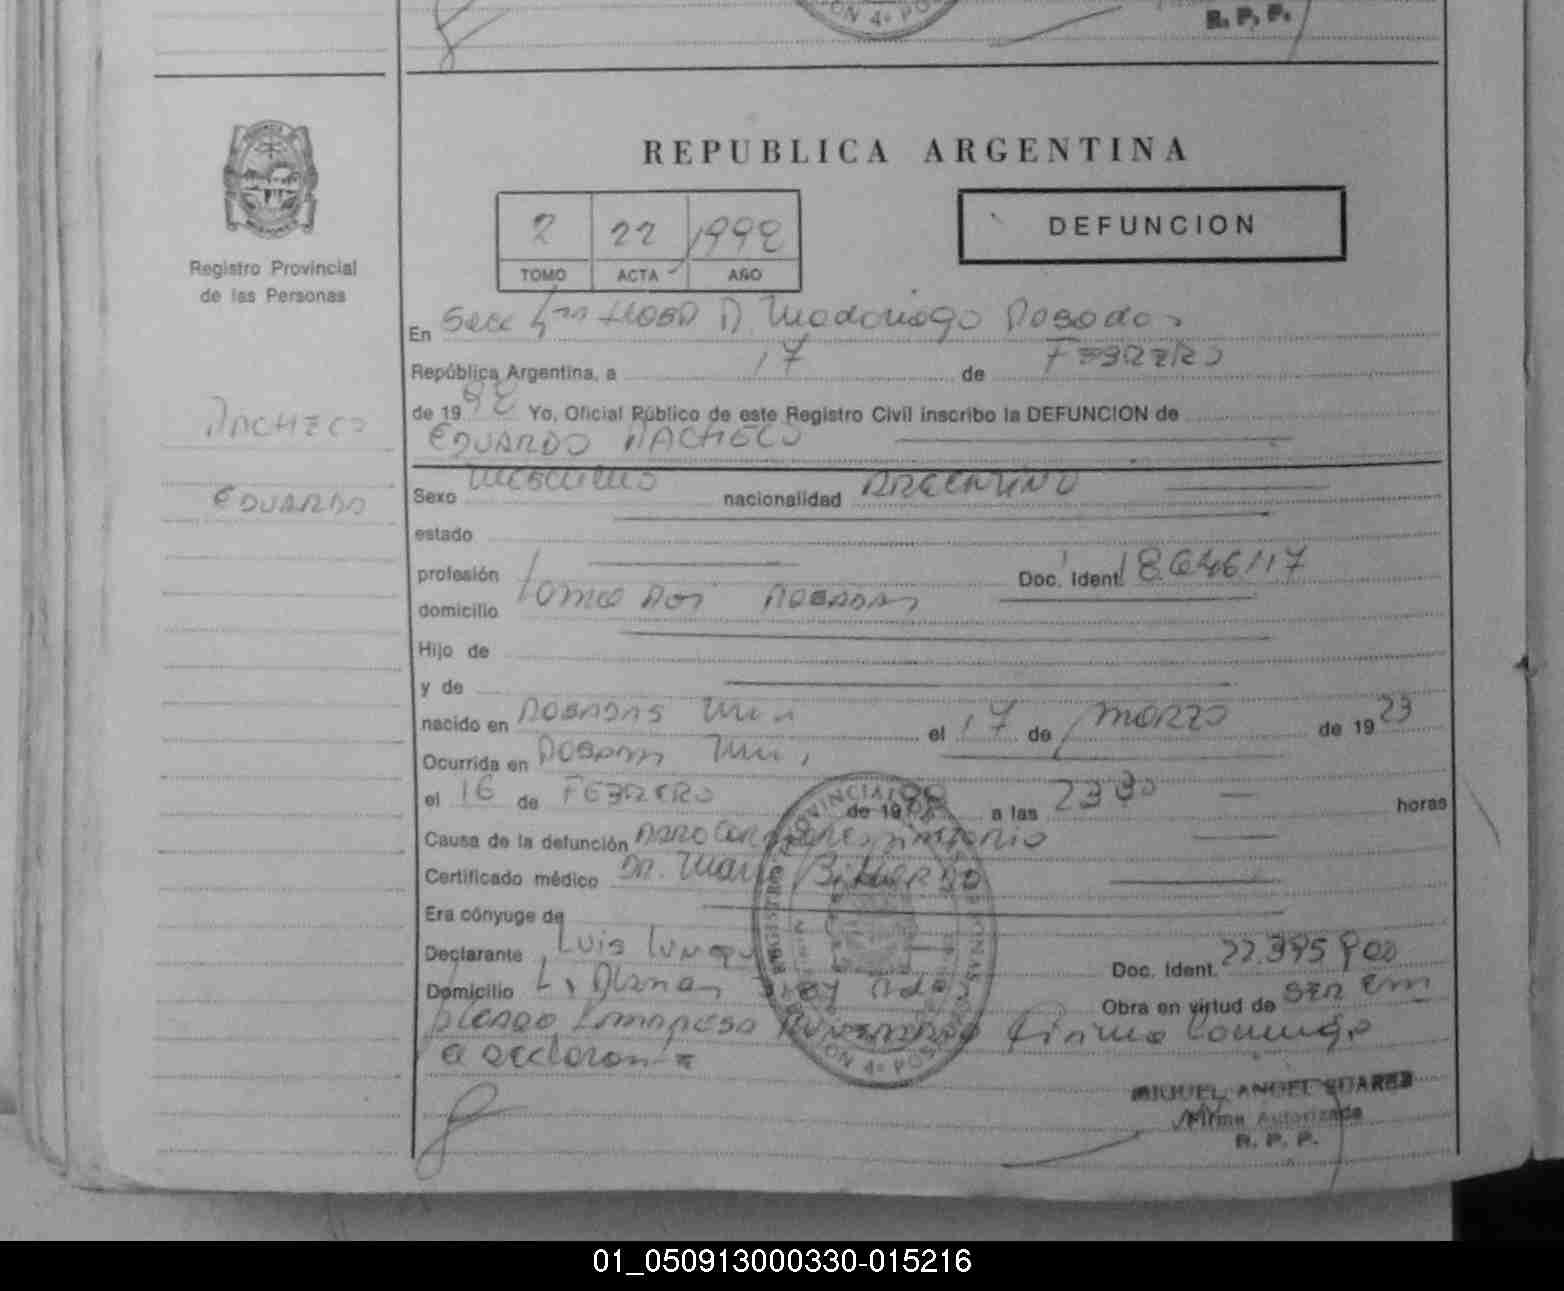 R. P. P.
REPUBLICA ARGENTINA
2 22 1992
DEFUNCION
TOMO ACTA AÑO
Registro Provincial
de las Personas
En Secc 4ta Hosp R Madariaga Posadas
República Argentina, a 17 de FEBRERO
de 19 92 Yo, Oficial Público de este Registro Civil inscribo la DEFUNCION de
EDUARDO PACHECO
PACHECO
EDUARDO
Sexo masculino nacionalidad ARGENTINO
estado
profesión Doc. Ident.
domicilio POSADAS
Hijo de
y de
nacido en POSADAS Mnes el 17 de MARZO de 19 23
Ocurrida en Posadas Mnes
el 16 de FEBRERO de 19 92 a las 23 30 horas
Causa de la defunción PARO Cardiorespiratorio
Certificado médico Dr. Mario
Era cónyuge de
Declarante Luis Doc. Ident. 22.395.900
Domicilio Obra en virtud de SER EM
pleado Empresa firma conmigo
a declaron
MIGUEL ANGEL SUAREZ
Firma Autorizada
R. P. P.
01_050913000330-015216